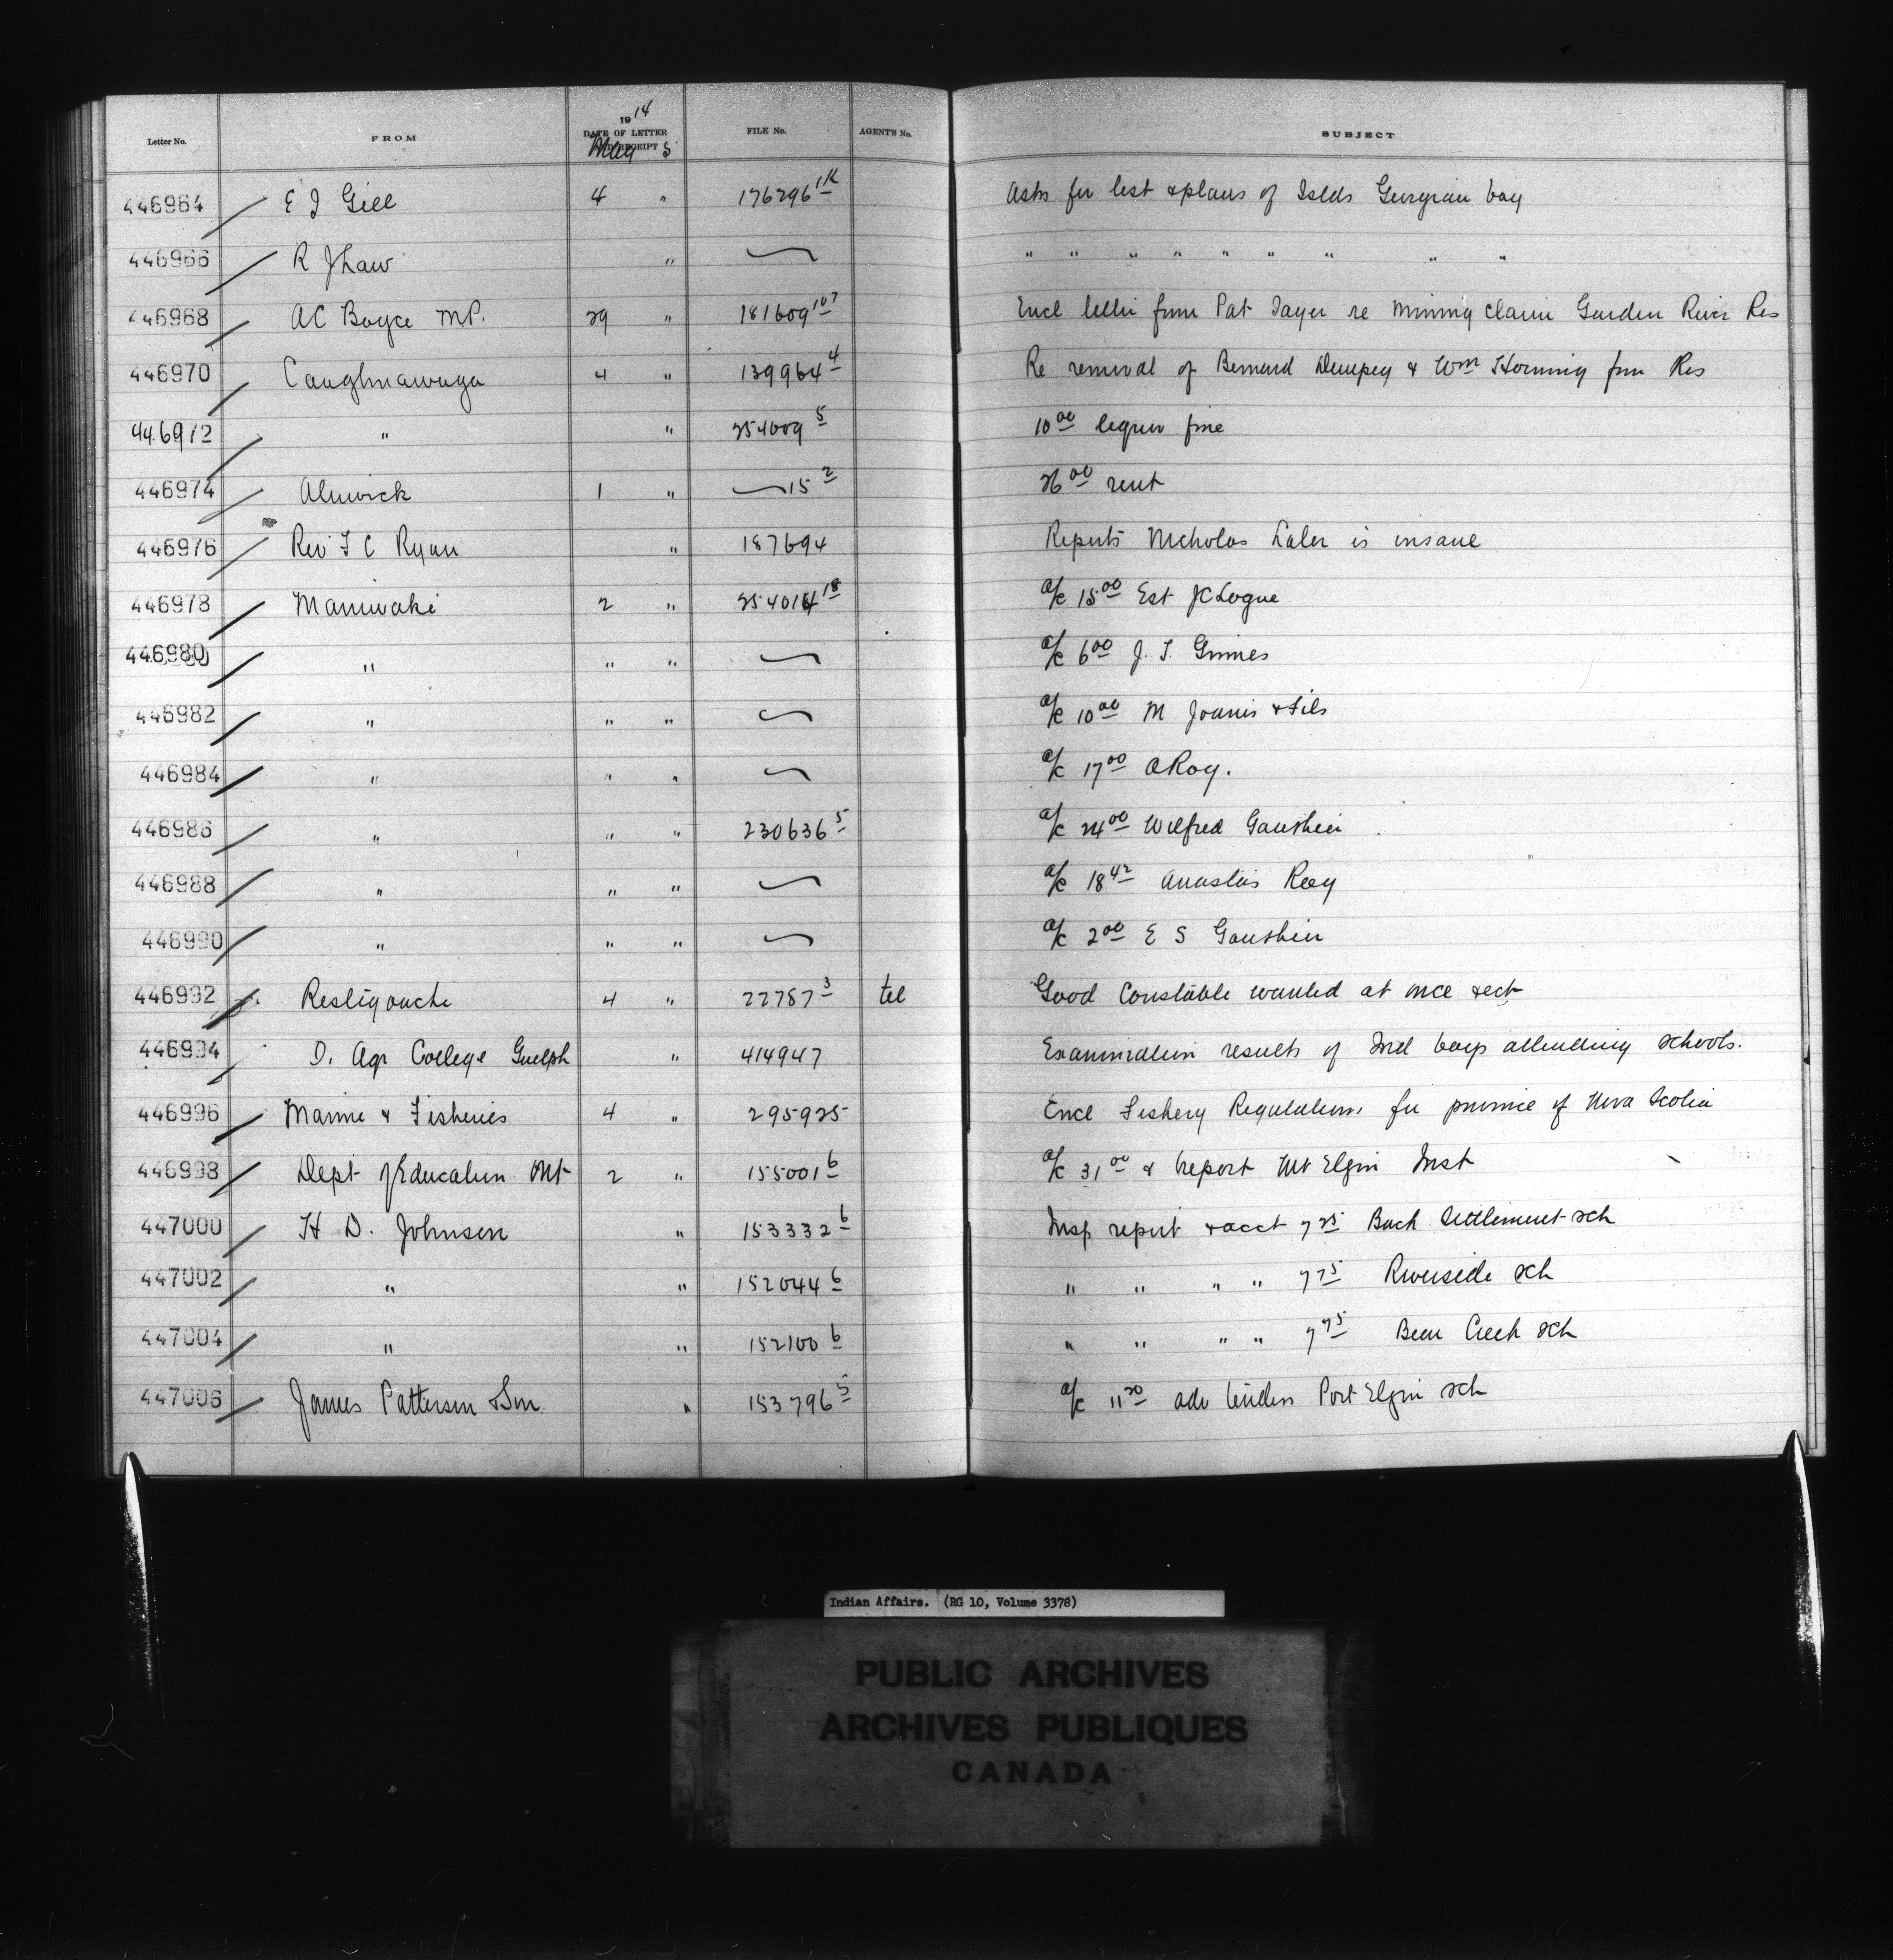 Letter No. FROM 1914 DATE OF LETTER AND RECEIPT FILE No. AGENT'S No. SUBJECT
May 5
446964 E J Gill 4 " 176296 1K Asks for list & plans of Islds Georgian bay
446966 R J Law " " " " " " " " " "
446968 AC Boyce MP. 29 " 181609 107 Encl letter from Pat Sayer re mining claim Garden River Res
446970 Caughnawaga 4 " 139964 4 Re removal of Bernard Dempey & Wm Horning from Res
446972 " " 254009 5 10 00 liquor fine
446974 Alnwick 1 " 15 2 26 00 rent
446976 Rev F C Ryan " 187694 Reports Nicholas is insane
446978 Maniwaki 2 " 254014 18 a/c 15 00 Est JC Logue
446980 " " " a/c 6 00 J. T. Grimes
446982 " " " a/c 10 00 M Joanis & Fils
446984 " " " a/c 17 00 A Roy.
446986 " " " 230636 5 a/c 24 00 Wilfred Gauthier
446988 " " " a/c 18 42 Roy
446990 " " " a/c 2 00 E S Gauthier
446992 Restigouche 4 " 22787 3 tel Good Constable wanted at once
446994 O. Agr College Guelph " 414947 Examination results of Ind boys attending schools.
446996 Marine & Fisheries 4 " 295925 Encl Fishery Regulations for province of Nova Scotia
446998 Dept of Education Ont 2 " 155001 6 a/c 31 00 & report Mt Elgin Inst
447000 H D. Johnson " 153332 6 Insp report & acct 7 25 Back Settlement sch
447002 " " 152044 6 " " " " 7 75 Riverside sch
447004 " " 152100 6 " " " " 7 75 Bear Creek sch
447006 James Patterson Son. " 153796 5 a/c 11 20 adv tenders Port Elgin sch
Indian Affairs. (RG 10, Volume 3378)
PUBLIC ARCHIVES
ARCHIVES PUBLIQUES
CANADA